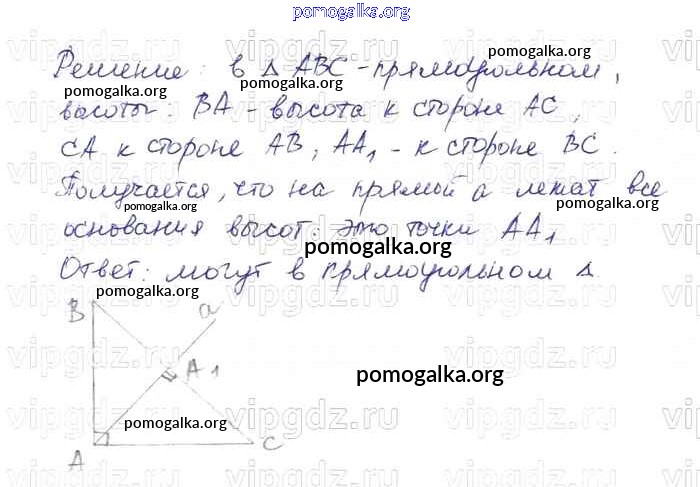 pomogalka.org
Решение: в Δ ABC - прямоугольном,
pomogalka.org
высоты: BA - высота к стороне AC,
pomogalka.org
CA к стороне AB, AA₁ - к стороне BC.
Получается, что на прямой a лежат все
pomogalka.org
основания высот: это точки AA₁
pomogalka.org
Ответ: могут в прямоугольном Δ
pomogalka.org
B a
A₁
pomogalka.org
pomogalka.org
A C
vipgdz.ru
vipgdz.ru
vipgdz.ru